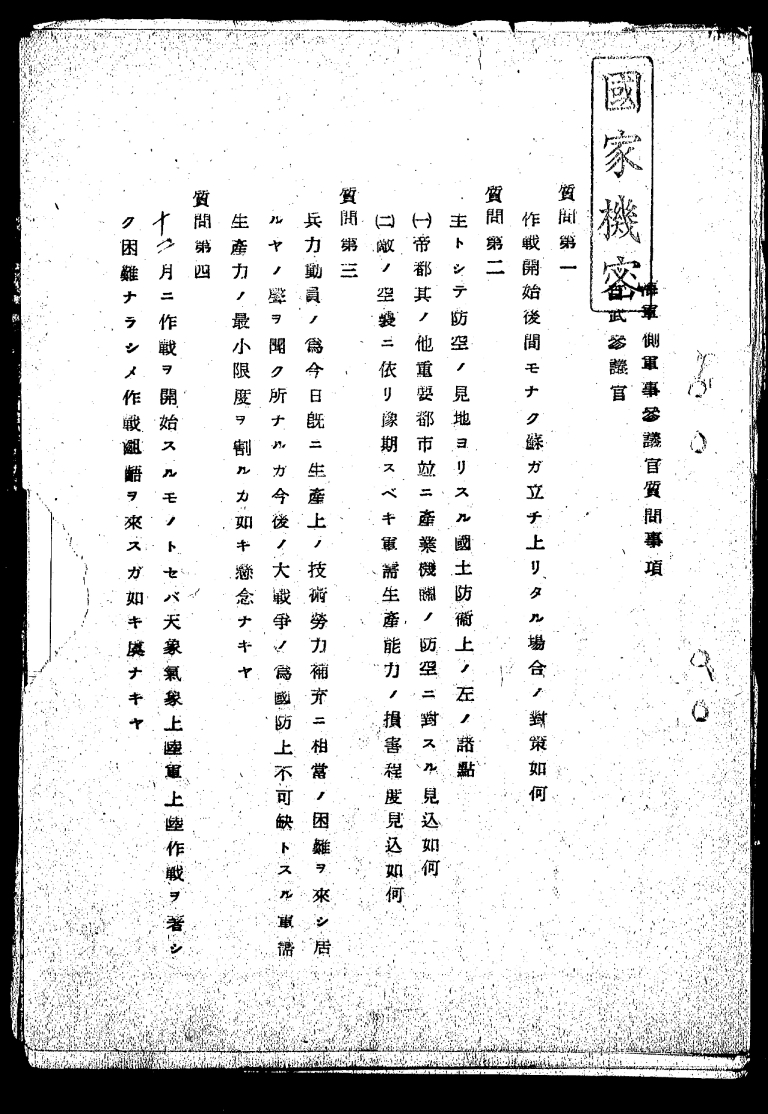 國家機密
海軍側軍事参議官質問事項
百武参議官
質問第一
作戰開始後間モナク蘇ガ立チ上リタル場合ノ對策如何
質問第二
主トシテ防空ノ見地ヨリスル國土防衞上ノ左ノ諸點
㈠帝都其ノ他重要都市竝ニ產業機關ノ防空ニ對スル見込如何
㈡敵ノ空襲ニ依リ豫期スベキ軍需生產能力ノ損害程度見込如何
質問第三
兵力動員ノ爲今日既ニ生產上ノ技術勞力補充ニ相當ノ困難ヲ來シ居
ルヤノ聲ヲ聞ク所ナルガ今後ノ大戰爭ノ爲國防上不可缺トスル軍需
生產力ノ最小限度ヲ割ルカ如キ懸念ナキヤ
質問第四
月ニ作戰ヲ開始スルモノトセバ天象氣象上陸軍上陸作戰ヲ著シ
ク困難ナラシメ作戰齟齬ヲ來スガ如キ虞ナキヤ